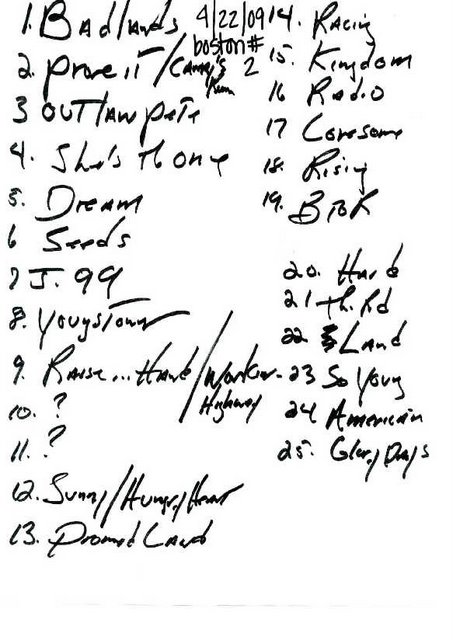 1. Badlands
2. Prove iT / CAndy's Room
3 OUTlAw PeTe
4. She's Th One
5. Dream
6 Seeds
7 J. 99
8. YoungsTown
9. RAise... HAnd / Worker / Highway
10. ?
11. ?
12. Sunny / Hungry HearT
13. Promised LAnd
4/22/09
boston #
2
14. Racing
15. Kingdom
16 RAdio
17 Lonesome
18. Rising
19. BToR
20. HArd
21 Th. Rd
22 LAnd
23 So Young
24 AmericAn
25. Glory DAys